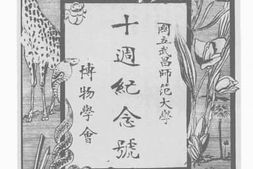 國立武昌師范大學
十週紀念號
博物學會